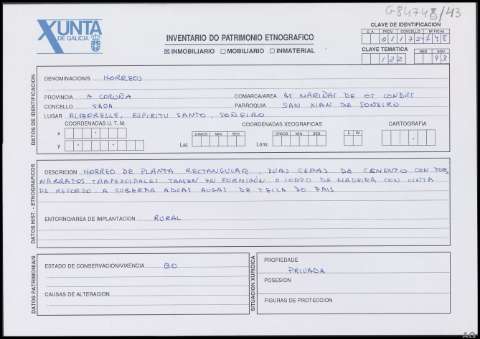 G84748/43
XUNTA
DE GALICIA
INVENTARIO DO PATRIMONIO ETNOGRAFICO
INMOBILIARIO MOBILIARIO INMATERIAL
CLAVE DE IDENTIFICACION
C.A. PRO. CONCELLO Nº FICHA
CLAVE TEMATICA
122 98
DATOS DE IDENTIFICACION
DENOMINACION: HORREO
PROVINCIA A CORUÑA COMARCA/AREA
CONCELLO SADA PARROQUIA SAN XIAN DE SOÑEIRO
LUGAR ESPIRITU SANTO, SOÑEIRO
COORDENADAS U.T.M. COORDENADAS XEOGRAFICAS: CARTOGRAFIA
X
Y
Lat. Lon.
DATOS HIST. - ETNOGRAFICOS
DESCRICION HORREO DE PLANTA RECTANGULAR, DUAS CEPAS DE CEMENTO CON
TRAPEZOIDALES TAMEN EN FORMIGON O CORPO DE MADEIRA CON CINTA
DE REFORZO A CUBERTA A DUAS AUGAS DE TELLA DO PAIS
ENTORNO/AREA DE IMPLANTACION RURAL
DATOS PATRIMONIAIS
ESTADO DE CONSERVACION/VIXENCIA BO
CAUSAS DE ALTERACION
SITUACION XURIDICA
PROPIEDADE
PRIVADA
POSESION
FIGURAS DE PROTECCION